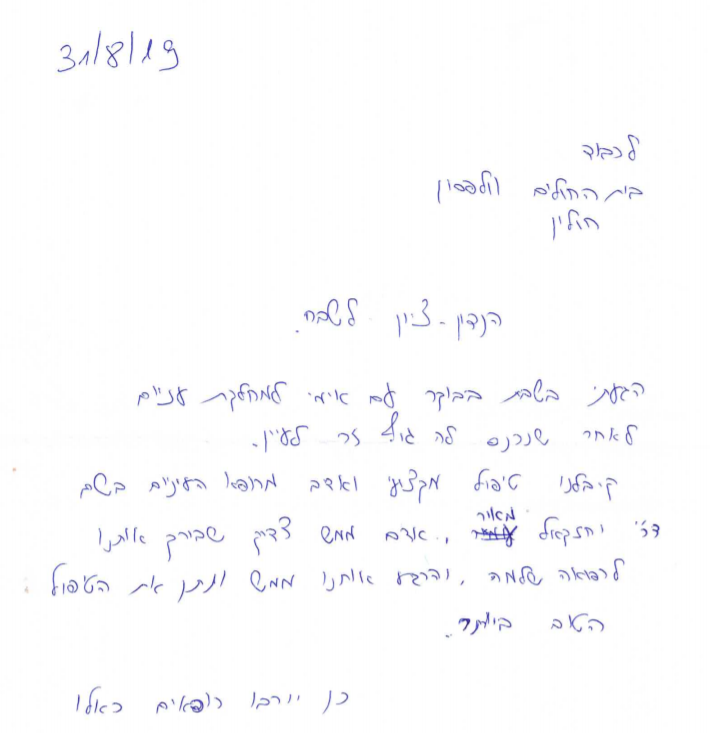 31/8/19
לכבוד
בית החולים וולפסון
חולין
הנדון - ציון לשבח.
הגעתי בשבת בבוקר עם אימי למחלקת עניים
לאחר שנכנס לה גוף זר לעיין.
קיבלנו טיפול מקצועי ואדב מרופא העיניים בשם
מאור
דר' יחזקאל , אדם ממש צדיק שבירך אותנו
לרפואה שלמה , והרגע אותנו ממש ונתן את הטיפול
הטוב ביותר.
כן יירבו רופאים כאלו